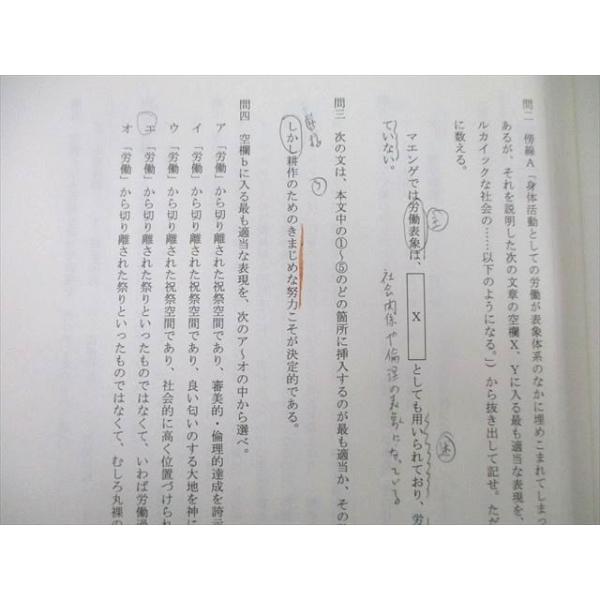 問二　傍線A「身体活動としての労働が表象体系のなかに埋めこまれてしまっ
あるが、それを説明した次の文章の空欄X、Yに入る最も適当な表現を、
ルカイックな社会の……以下のようになる。」）から抜き出して記せ。ただ
に数える。
マエンゲでは労働表象は、 X としても用いられており、労
社会関係や倫理の表象になっている
ていない。
問三　次の文は、本文中の①〜⑤のどの箇所に挿入するのが最も適当か、その
しかし耕作のためのきまじめな努力こそが決定的である。
問四　空欄bに入る最も適当な表現を、次のア〜オの中から選べ。
ア　「労働」から切り離された祝祭空間であり、審美的・倫理的達成を誇示
イ　「労働」から切り離された祝祭空間であり、良い匂いのする大地を神に
ウ　「労働」から切り離された祝祭空間であり、社会的に高く位置づけられ
エ　「労働」から切り離された祭りといったものではなくて、いわば労働過
オ　「労働」から切り離された祭りといったものではなくて、むしろ丸裸の